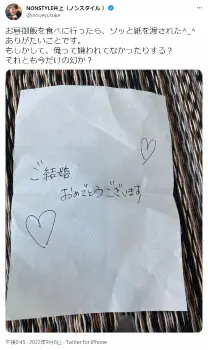 NONSTYLE井上(ノンスタイル)
@inoueyusuke
お昼御飯を食べに行ったら、ソッと紙を渡された^_^
ありがたいことです。
もしかして、俺って嫌われてなかったりする?
それとも今だけの幻か?
ご結婚
おめでとうございます
午後0:45 · 2022年9月6日 · Twitter for iPhone